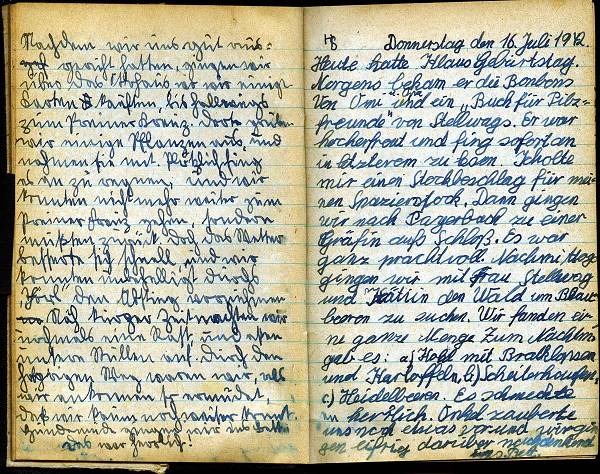 Nachdem wir uns gut aus=
geruht hatten, gingen wir
über das
Karten kauften, bis halbwegs
zum Preiner Kreuz, dort
wir einige Pflanzen aus, und
nahmen sie mit. Plötzlich fing
es an zu regnen, und wir
konnten nicht mehr weiter zum
Preiner Kreuz gehen, sondern
mußten zurück. Doch das Wetter
besserte sich schnell, und wir
konnten
den Abstieg
Nach kurzer Zeit machten wir
nochmals eine Rast, und aßen
unsere Stullen auf. Durch den
Weg waren wir, als
wir ankamen so ermüdet,
daß wir kaum noch weiter konnt.
gingen wir ins Bett.
Das war herrlich!
Donnerstag den 16. Juli 1942.
Heute hatte Klaus Geburtstag.
Morgens bekam er die Bonbons
von Omi und ein „Buch für Pilz=
freunde" von Stellwags. Er war
hocherfreut und fing sofort an
in letzterem zu lesen. Ich holte
mir einen Stockbeschlag für mei-
nen Spazierstock. Dann gingen
wir nach Payerbach zu einer
Gräfin aufs Schloß. Es war
ganz prachtvoll. Nachmittags
gingen wir mit Frau Stellwag
und in den Wald um Blau
beeren zu suchen. Wir fanden ei-
ne ganze Menge. Zum Nachtm
gab es: a) Kohl mit Bratklopsen
und Kartoffeln, b) Scheiterhaufen,
c) Heidelbeeren. Es schmeckte
herrlich. Onkel zauberte
uns noch etwas vor und wir gin
gen eifrig darüber nachdenkend
ins Bett.